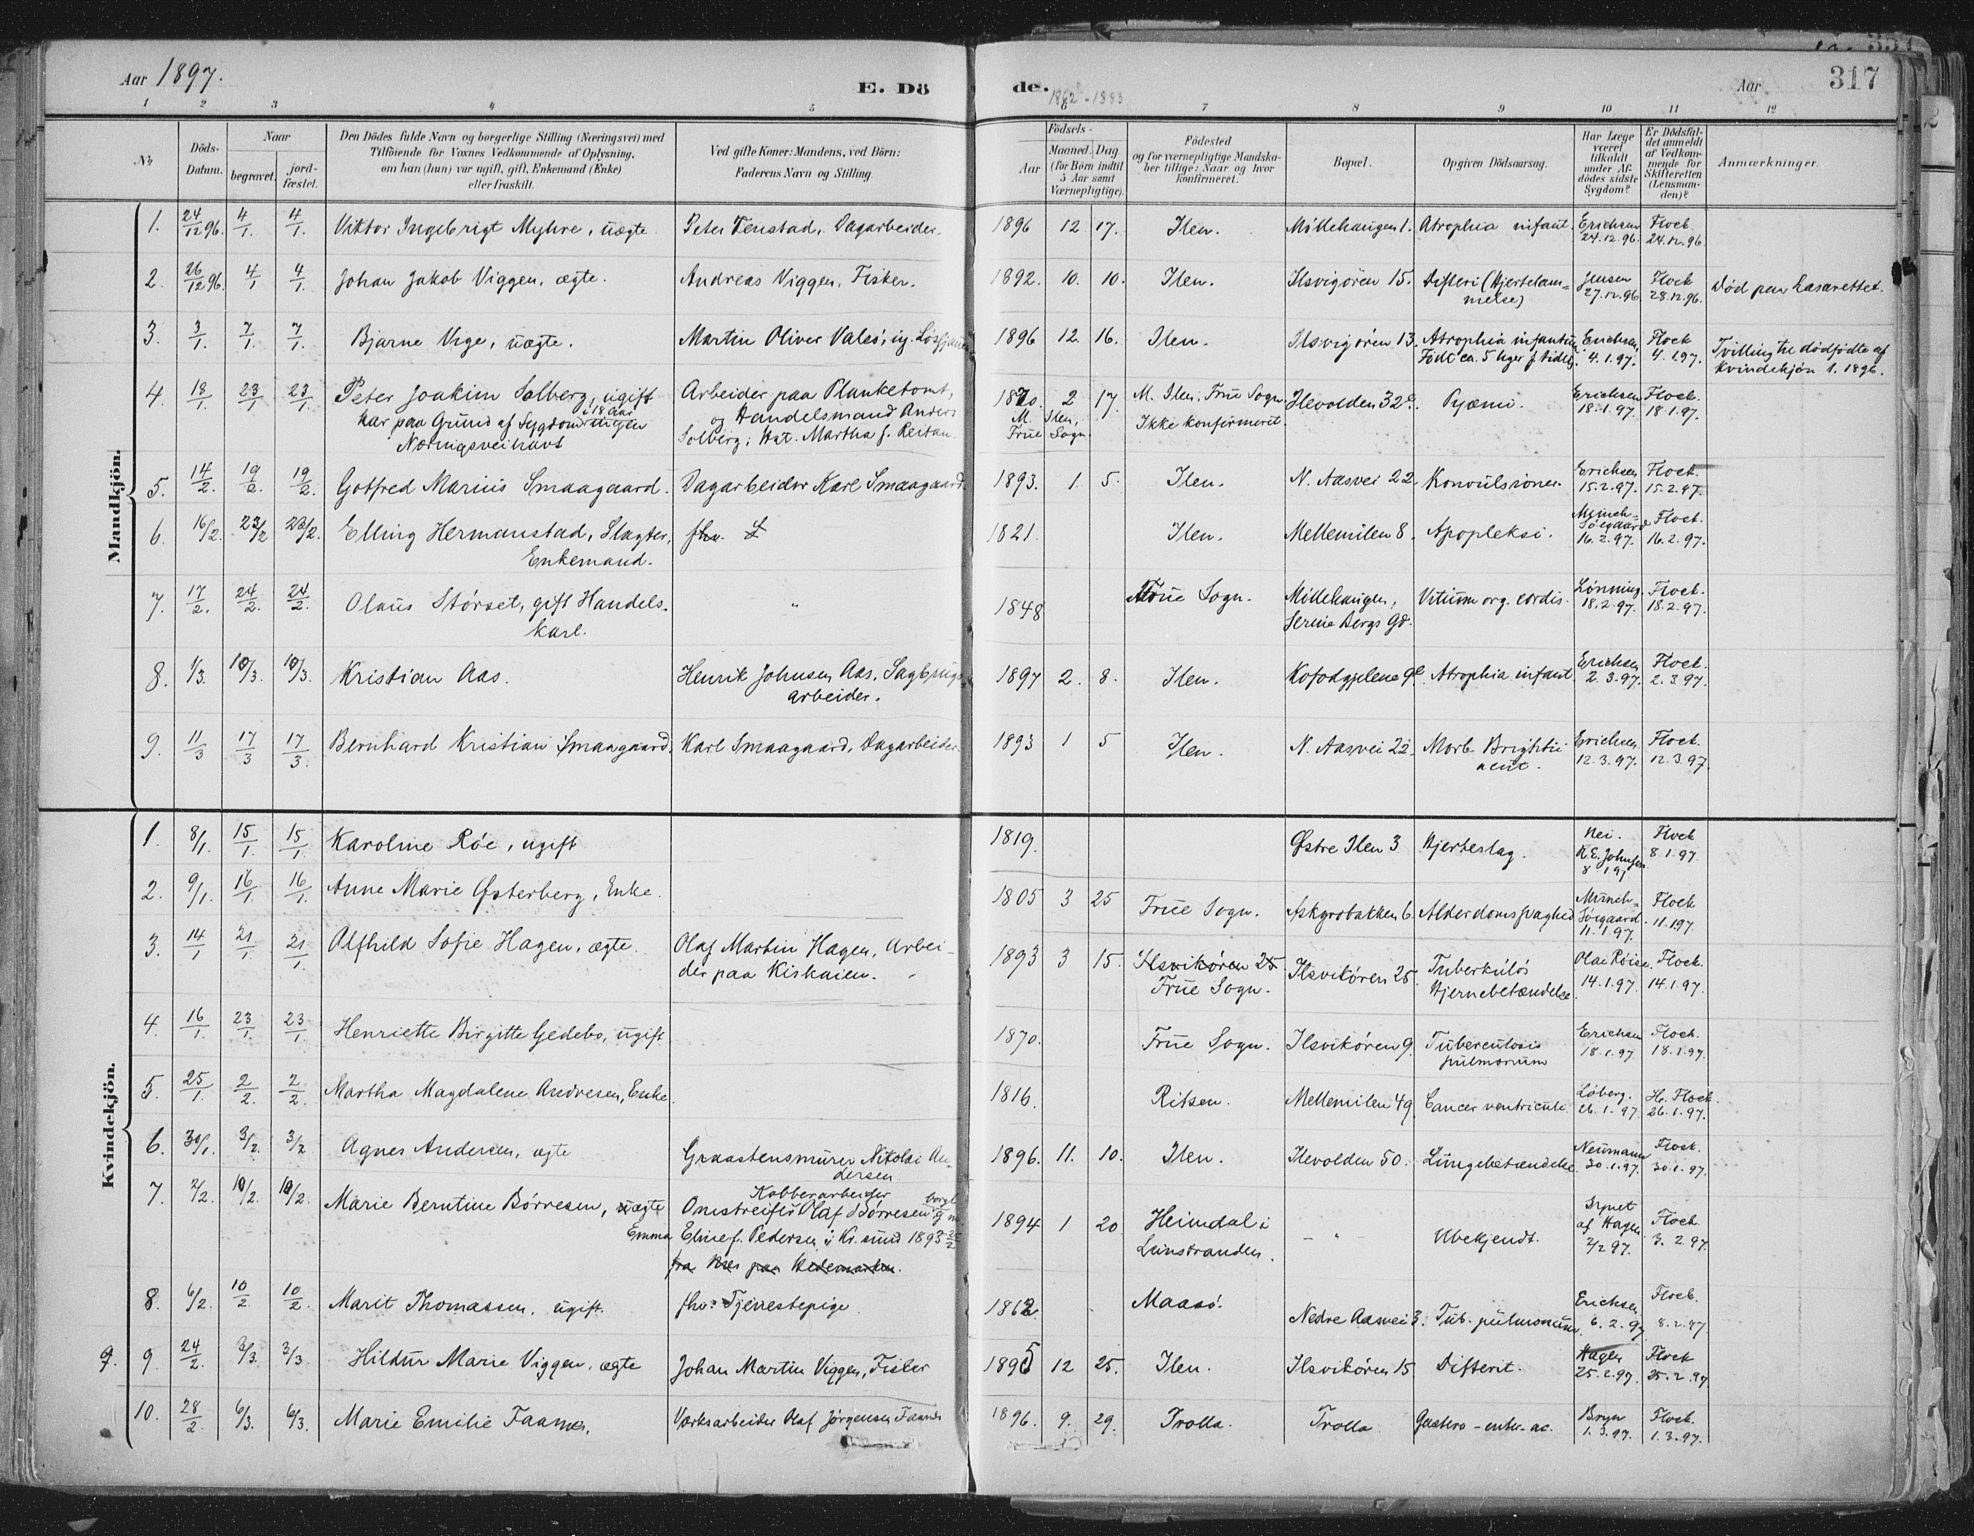 Aar 1897. E. Døde. 1882-1883 Aar 317
1 2 3 4 5 6 7 8 9 10 11 12
No
Døds-Datum.
Naar
begravet.
jordfæstet.
Den Dödes fulde Navn og borgerlige Stilling (Næringsvei) med
Tilföiende for Voxnes Vedkommende af Oplysning,
om han (hun) var ugift, gift, Enkemand (Enke)
eller fraskilt.
Ved gifte Koner: Mandens, ved Börn:
Faderens Navn og Stilling.
Födsels-
Aar
Maaned. Dag
(for Börn indtil
5 Aar samt
Værnepligtige).
Födested
og for værnepligtige Mandska-
ber tillige: Naar og hvor
konfirmeret.
Bopæl.
Opgiven Dödsaarsag.
Har Læge
været
tilkaldt
under Af-
dödes sidste
Sygdom?
Er Dödsfal-
det anmeldt
af Vedkom-
mende for
Skifteretten
(Lensman-
den)?
Anmærkninger.
Mandkjön.
1. 24/12 96. 4/1. 4/1. Viktor Ingebrigt Myhre, uægte. Peter Venstad, Dagarbeider. 1896 12. 17. Ilen. Möllehaugen 1. Atrophia infant. Erichsen 24.12.96. Flock. 24.12.96
2. 26/12 96. 4/1 4/1. Johan Jakob Viggen, ægte. Andreas Viggen, Fisker. 1892. 10. 10. Ilen. Ilsvigören 15. Difteri (Hjertelam-
melse) Jensen 27.12.96. Flock 28.12.96. Död paa Lasarettet.
3. 3/1. 7/1. 7/1. Bjarne Vige, uægte. Martin Oliver Valsö, ug. 1896 12. 16. Ilen. Ilsvigören 13. Atrophia infantum
Födt ca. 5 Uger f. Tiden. Erichsen, 4.1.97. Flock 4.1.97. Tvilling til dödfödte af
Kvindekjön 1. 1896.
4. 18/1. 23/1. 23/1. Peter Joakim Solberg, ugift
har paa Grund af Sygdom i 18 Aar ingen
Næringsvei havt
Arbeider paa Planketomt,
og Handelsmand Anders
Solberg; Hst. Martha f. Reitan.
1870. 2 17. M. Ilen, Frue Sogn
M. Ilen,
Frue Sogn.
Ikke konfirmeret. Ilevolden 32 Pyæmi. Erichsen 18.1.97. Flock. 18.1.97.
5. 14/2. 19/2. 19/2. Gotfred Marius Smaagaard. Dagarbeider Karl Smaagaard. 1893. 1. 5. Ilen. N. Aasvei 22. Konvulsioner. Erichsen 15.2.97. Flock. 15.2.97.
6. 16/2. 23/2 23/2. Elling Hermanstad, Slagter,
Enkemand. fhv. 1821. Ilen. Mellemilen 8. Apopleksi. Munch-Söegaard 16.2.97. Flock. 16.2.97.
7. 17/2. 24/2. 24/2. Olaus Störset, gift Handels-
karl. " 1848 Frue Sogn. Möllehaugen,
Serine Bergs Gd. Vitium org. cordis. Lönning. 18.2.97. Flock. 18.2.97.
8. 1/3. 10/3. 10/3. Kristian Aas. Henrik Johnsen Aas, Sagbrugs-
arbeider. 1897 2. 8. Ilen. Kofodgjelene 9 Atrophia infant Erichsen 2.3.97. Flock. 2.3.97.
9. 11/3 17/3 17/3. Bernhard Kristian Smaagaard. Karl Smaagaard, Dagarbeider. 1893 1 5 Ilen. N. Aasvei 22. Morb. Brightii
acut. Erichsen 12.3.97. Flock. 12.3.97.
Kvindekjön.
1. 8/1. 15/1. 15/1. Karoline Röe, ugift 1819. Østre Ilen 3 Hjerteslag. Nei. K.E. Johnsen 8 1 97 Flock 8.1.97.
2. 9/1. 16/1. 16/1. Anne Marie Østerberg, Enke. 1805 3 25 Frue Sogn. Askgrobakken 6. Alderdomssvaghed. Munch-Söegaard. 11.1.97. Flock 11.1.97.
3. 14/1 21/1 21/1. Alfhild Sofie Hagen, ægte. Olaf Martin Hagen, Arbei-
der paa Kiskaien. 1893 3 15. Ilsvikören 25
Frue Sogn. Ilsvikören 25. Tuberkulös
Hjernebetændelse. Olai Röise. 14.1.97. Flock. 14.1.97.
4. 16/1. 23/1. 23/1. Henriette Birgitte Gedebo, ugift 1870. Frue Sogn. Ilsvikören 9. Tuberculosis
pulmonum Erichsen 18.1.97. Flock. 18.1.97.
5. 25/1. 2/2. 2/2. Martha Magdalene Andresen, Enke. 1816. Ritsen. Mellemilen 49. Cancer ventriculi. Löberg. 26.1.97. H. Flock. 26.1.97.
6. 30/1. 3/2. 3/2 Agnes Andersen, ægte Graastensmurer Nikolai An-
dersen 1896. 11. 10. Ilen. Ilevolden 50. Lungebetændelse. Neumann 30.1.97. Flock. 30.1.97.
7. 2/2. 10/2. 10/2. Marie Berntine Börresen, uægte
Kobberarbeider
Omstreifer Olaf Börresen borgl. g. m.
Emma Eline f. Pedersen i Kr.sund 1893 25/2
fra Næs paa Hedemarken.
1894 1 20 Heimdal i
Leinstranden. - " - Ubekjendt. Synet af Hagen 2/2 97. Flock. 3.2.97.
8. 6/2. 10/2. 10/2. Marit Thomassen, ugift. fhv. Tjenestepige. 1862. Maasö. Nedre Aasvei 3. Tub. pulmonum. Erichsen 6.2.97 Flock. 8.2.97.
9. 9. 24/2. 3/3. 3/3. Hildur Marie Viggen, ægte Johan Martin Viggen, Fisker 1895 12 25. Ilen. Ilsvikören 15. Difterit. Hagen 25.2.97. Flock 25.2.97
10. 28/2. 6/3. 6/3. Marie Emilie Faanes. Værksarbeider Olaf Jörgensen Faanes 1896. 9. 29. Trolla. Trolla Gastro-enter. ac. Bryn 1.3.97. Flock. 1.3.97.